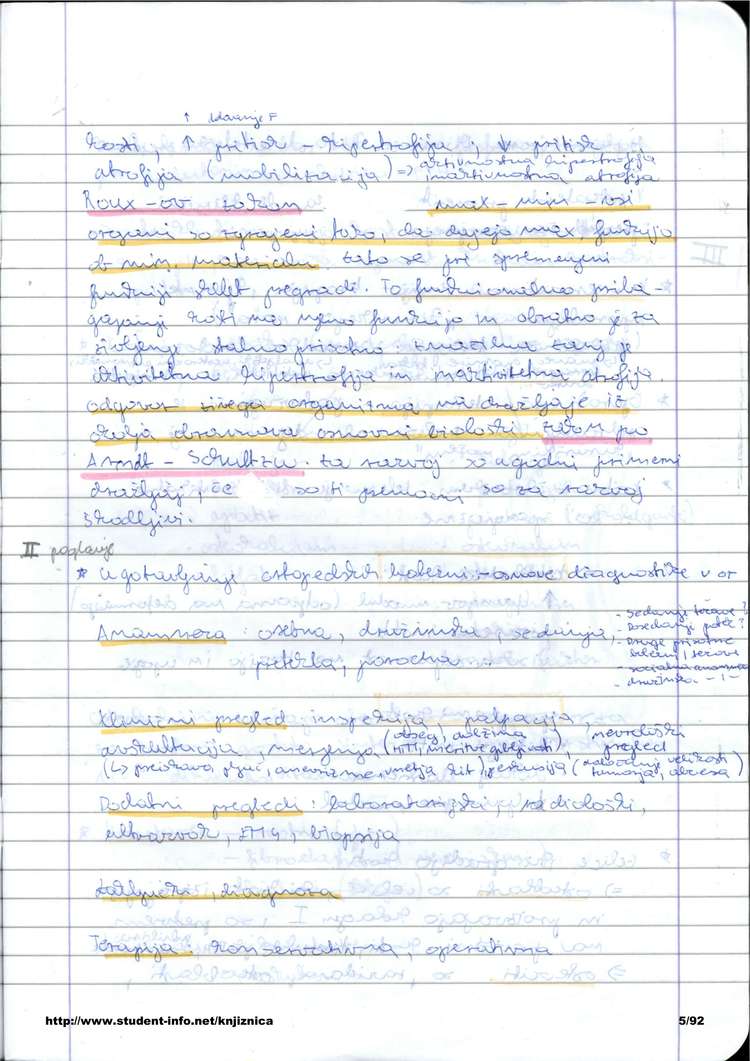 ↑ F
kosti, ↑ pritisk - hipertrofija, ↓ pritisk
atrofija (mobilizacija) => aktivnostna hipertrofija
inaktivnostna atrofija
Roux-ov zakon max - min - osi
organi so zgrajeni tako, da dajejo max. funkcijo
ob min. materialu. tako se pri spremenjeni
funkciji skelet pregradi. To funkcionalno prila-
gajanje kosti na njeno funkcijo in obratno je za
življenje stalno prisotno. značilna zanj je
aktivitetna hipertrofija in inaktivitetna atrofija.
odgovor živega organizma na dražljaje iz
okolja osnovni biološki zakon po
Arndt - Schultzu. za razvoj so ugodni primerni
dražljaji, če so ti premočni so za razvoj
škodljivi.
II poglavje
* ugotavljanje ortopedskih bolezni - osnove diagnostike v or
Anamneza: osebna, družinska, sedanja,
pretekla, porodna
- sedanje težave?
- Dosedanji potek?
- druge prisotne
bolezni / težave
- socialna anamneza
- družinska -"-
Klinični pregled inspekcija, palpacija,
avskultacija, merjenja (obseg, dolžina, meritve gibljivosti), nevrološki pregled
(↳ prekrava, pljuč, anevrizme, vnetja kit), perkusija (določanje velikosti
tumorja, abscesa)
Dodatni pregledi: laboratorijski, radiološki,
ultrazvok, EMG, biopsija
zaključki, diagnoza
Terapija: konservativna, operativna
http://www.student-info.net/knjiznica 5/92